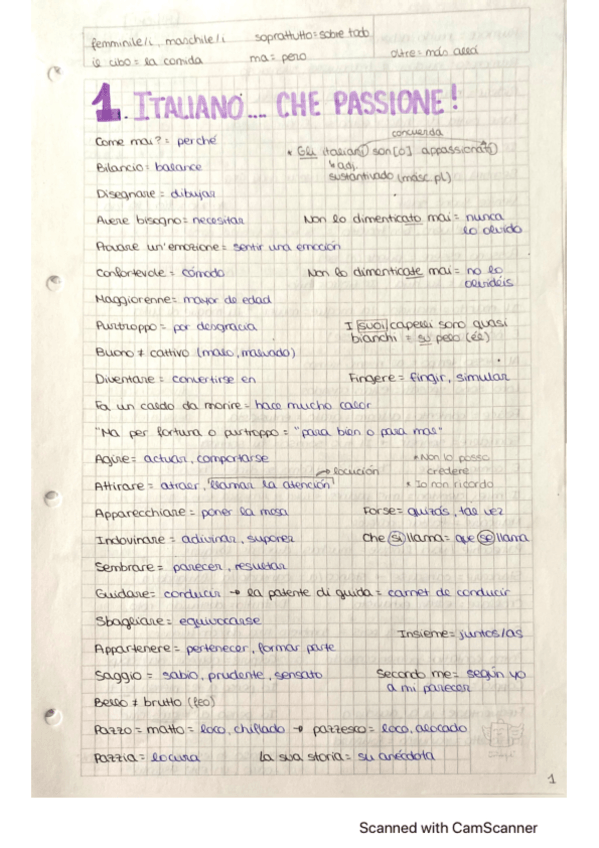 femminile/i, maschile/i    soprattutto = sobre todo
il cibo = la comida    ma = pero    oltre = más allá
1. ITALIANO... CHE PASSIONE!
Come mai? = perché    concuerda
* Gli italiani son[o] appassionati
Bilancio = balance    ↳ adj.
sustantivado (masc. pl)
Disegnare = dibujar
Avere bisogno = necesitar    Non lo dimenticato mai = nunca
lo olvido
Provare un'emozione = sentir una emoción
Confortevole = cómodo    Non lo dimenticate mai = no lo
olvidéis
Maggiorenne = mayor de edad
Purtroppo = por desgracia    I suoi capelli sono quasi
bianchi = su pelo (él)
Buono ≠ cattivo (malo, malvado)
Diventare = convertirse en    Fingere = fingir, simular
Fa un caldo da morire = hace mucho calor
"Ma per fortuna o purtroppo = "para bien o para mal"
Agire = actuar, comportarse    * Non lo posso
credere
→ locución
Attirare = atraer, llamar la atención    * Io non ricordo
Apparecchiare = poner la mesa    Forse = quizás, tal vez
Indovinare = adivinar, suponer    Che si llama = que se llama
Sembrare = parecer, resultar
Guidare = conducir → la patente di guida = carnet de conducir
Sbagliare = equivocarse
Insieme = juntos/as
Appartenere = pertenecer, formar parte
Saggio = sabio, prudente, sensato    Secondo me = según yo
a mi parecer
Bello ≠ brutto (feo)
Pazzo = matto = loco, chiflado → pazzesco = loco, alocado
Pazzia = locura    La sua storia = su anécdota
1
Scanned with CamScanner